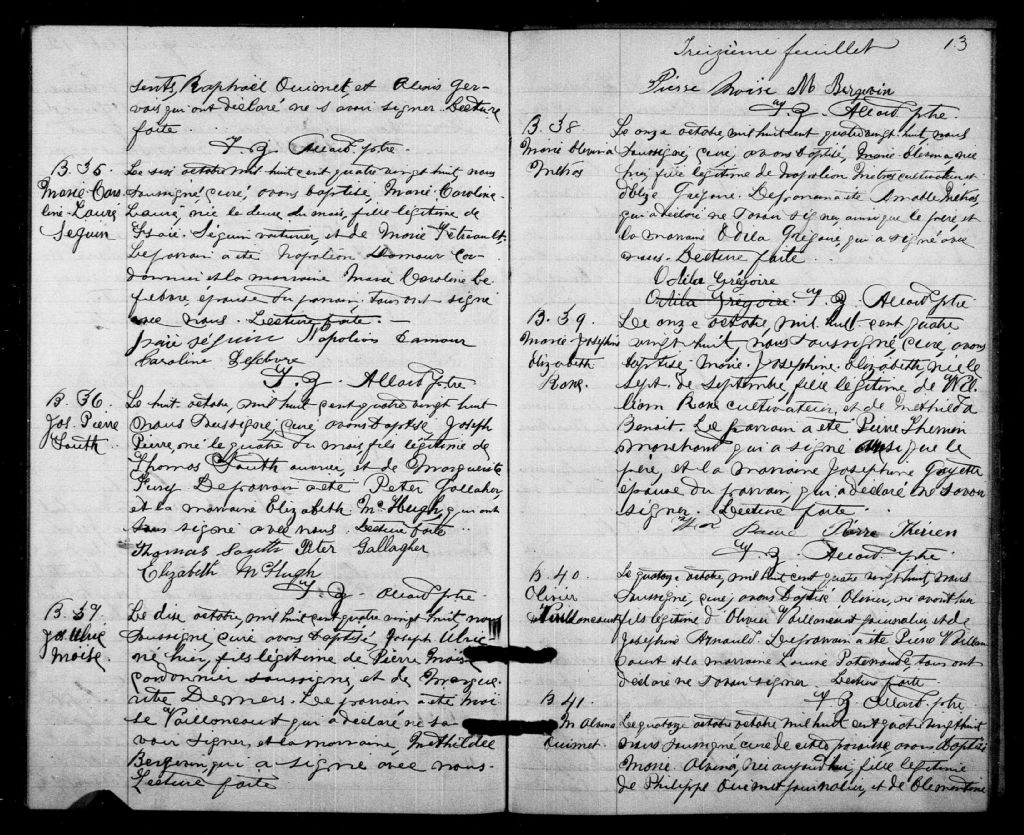 sents, Raphaël Ouimet et Alexis Ger-
vais qui ont déclaré ne savoir signer. Lecture
faite.
Allard ptre.
B. 35
Marie-Caro
line-Laura
Séguin
Le six octobre, mil huit cent quatre vingt huit nous
soussigné, curé, avons baptisé, Marie Caroline
Laura, née le deux du mois, fille légitime de
Isaïe Séguin voiturier, et de Marie Tétreault.
Le parrain a été Napoléon Lamour cor-
donnier et la marraine Marie Caroline Le-
febvre, épouse du parrain. Tous ont signé
avec nous. Lecture faite. —
Isaïe Séguin Napoléon Lamour
Caroline Lefebvre
Allard ptre
B. 36
Jos. Pierre
South
Le huit octobre, mil huit cent quatre vingt huit
nous soussigné, curé, avons baptisé Joseph
Pierre, né le quatre du mois, fils légitime de
Thomas South ouvrier, et de Marguerite
Le parrain a été Peter Gallagher
et la marraine Elizabeth McHugh, qui ont
signé avec nous. Lecture faite
Thomas South Peter Gallagher
Elizabeth McHugh
Allard ptre.
B. 37
Jos. Ulric
Moise.
Le dix octobre, mil huit cent quatre vingt huit nous
soussigné, curé avons baptisé, Joseph Ulric
né hier, fils légitime de Pierre Moise
cordonnier soussigné, et de Margue-
rite Demers. Le parrain a été Moi-
se Vaillancourt qui a déclaré ne sa-
voir signer, et la marraine, Mathildee
Bergevin, qui a signé avec nous.
Lecture faite
Treizième feuillet 13
Pierre Moise M Bergevin
Allard ptre.
B. 38
Marie Olivina
Métras
Le onze octobre, mil huit cent quatre vingt huit nous
soussigné, curé, avons baptisé, Marie Olivina, née
fille légitime de Napoléon Métras cultivateur et
d'Elize Grégoire. Le parrain a été Amable Métras
qui a déclaré ne savoir signer, ainsi que le père, et
la marraine Odila Grégoire, qui a signé avec
nous. Lecture faite.
Odila Grégoire
Odila Grégoire. Allard ptre
B. 39.
Marie-Josephine
Elizabeth
Rowe.
Le onze octobre, mil huit cent quatre
vingt huit, nous soussigné, curé, avons
baptisé, Marie Josephine Elizabeth née le
sept de septembre, fille légitime de Wil-
liam Rowe cultivateur, et de Mathilda
Benoit. Le parrain a été Pierre Therien
marchand qui a signé ainsi que le
père, et la marraine Josephine Goyette
épouse du parrain, qui a déclaré ne savoir
signer. Lecture faite.
Pierre Thérien
Allard ptre.
B. 40
Olivier
Vaillancourt
Le quatorze octobre, mil huit cent quatre vingt huit, nous
soussigné, curé, avons baptisé, Olivier, né avant hier
fils légitime d'Olivier Vaillancourt journalier et de
Josephine Arnauld. Le parrain a été Pierre Vaillan-
court et la marraine Louise Patenaude, tous ont
déclaré ne savoir signer. Lecture faite.
Allard ptre
B. 41
M Alvina
Ouimet.
Le quatorze octobre octobre mil huit cent quatre vingt huit
nous soussigné curé de cette paroisse avons baptisé
Marie Alvina, née aujourd'hui, fille légitime
de Philippe Ouimet journalier, et de Clémentine